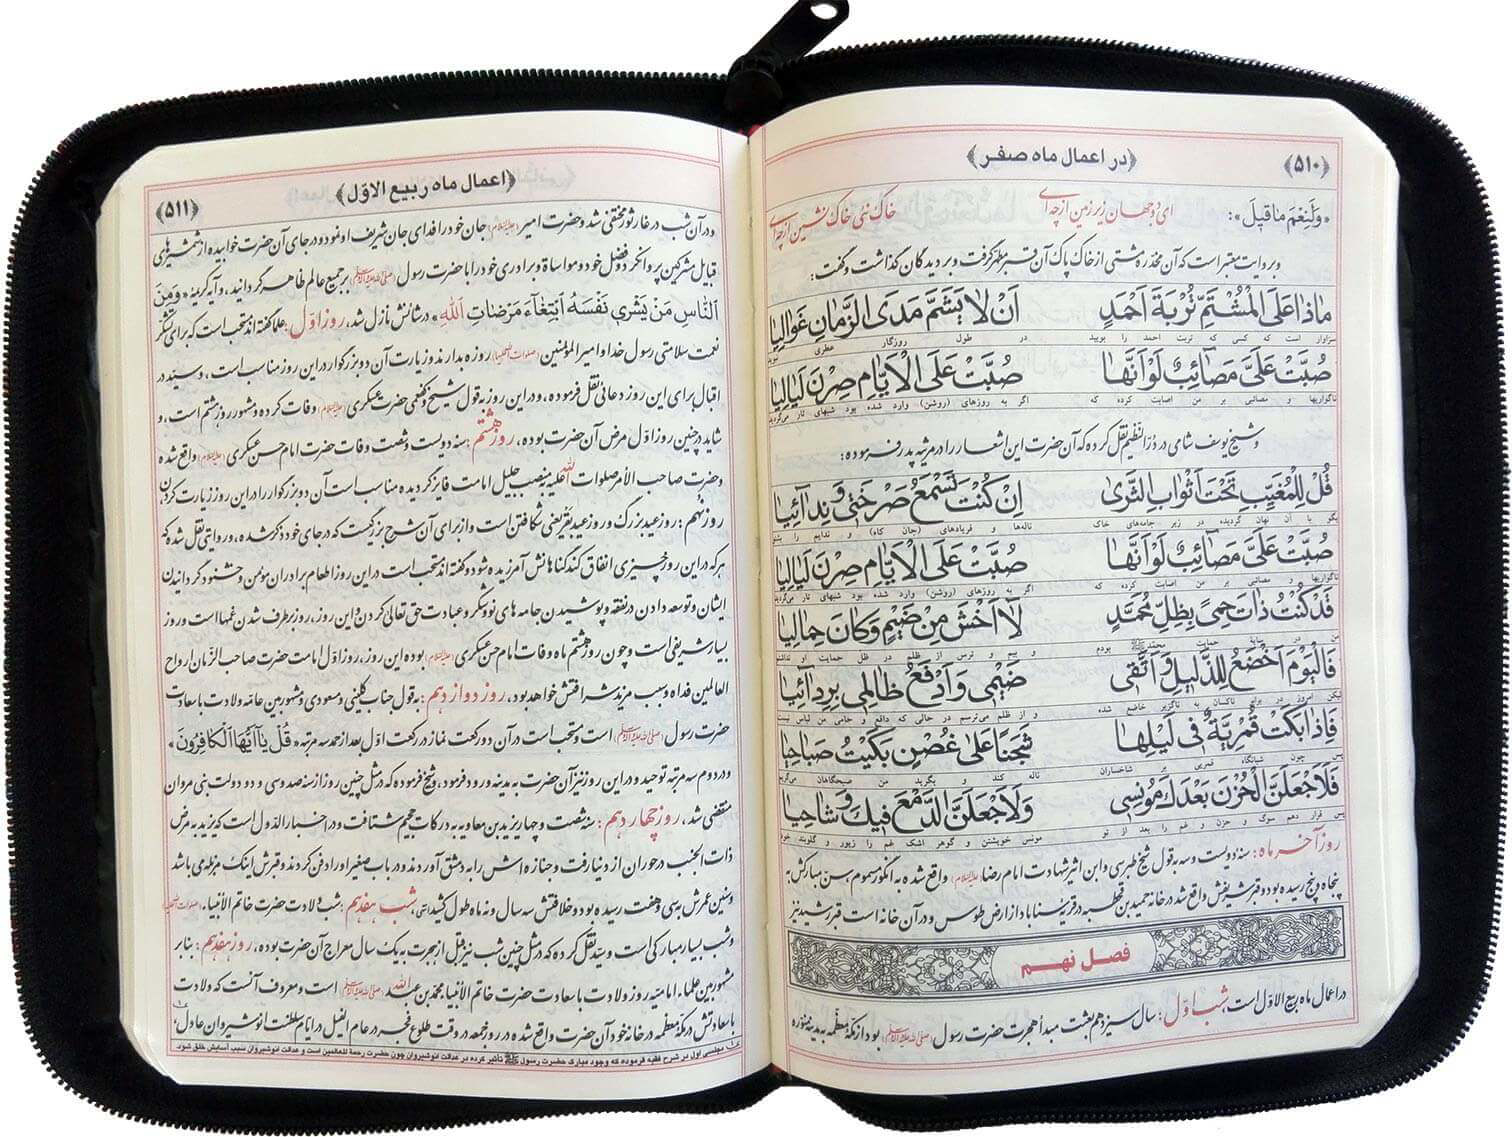 ﴿۵۱۰﴾
﴿در اعمال ماه صفر﴾
«وَلَنِعْمَ ما قیلَ»: ای دو جهان زیر زمین از چه‌ای خاک نئی خاک نشین از چه‌ای
و بروایت معتبر است که آن مخدره مشتی از خاک پاک آن قبر مطهر گرفت و بر دیدگان گذاشت و گفت:
ماذا عَلَى الْمُشْتَمِّ تُرْبَةَ اَحْمَدٍ اَنْ لا یَشَمَّ مَدَى الزَّمانِ غَوالِیا
سزاوار است که کسی که تربت احمد را بوئید در طول روزگار عطری نبوید
صُبَّتْ عَلَیَّ مَصآئِبٌ لَوْ اَنَّها صُبَّتْ عَلَى الْاَیّامِ صِرْنَ لَیالِیا
ناگواریها و مصائبی بر من اصابت کرده که اگر به روزهای (روشن) وارد شده بود شبهای تار می‌گردید
و شیخ یوسف شامی در درّالنظیم نقل کرده که آن حضرت این اشعار را در مرثیه پدر فرموده:
قُلْ لِلْمُغَیَّبِ تَحْتَ اَثْوابِ الثَّرى اِنْ کُنْتَ تَسْمَعُ صَرْخَتی وَ نِدآئِیا
بگو با آن نهان گردیده در زیر جامه‌های خاک ناله‌ها و فریادهای (جان کاه) و ندایم را بشنو
صُبَّتْ عَلَیَّ مَصآئِبٌ لَوْ اَنَّها صُبَّتْ عَلَى الْاَیّامِ صِرْنَ لَیالِیا
ناگواریها و مصائبی بر من اصابت کرده که اگر به روزهای (روشن) وارد شده بود شبهای تار می‌گردید
قَدْ کُنْتُ ذاتَ حِمىً بِظِلِّ مُحَمَّدٍ لا اَخْشَ مِنْ ضَیْمٍ وَ کانَ حِمالِیا
من در سایهٔ حمایت محمد ﷺ بودم و بیم و ترس از ظلم در ظل حمایت او نداشتم
فَالْیَوْمَ اَخْضَعُ لِلذَّلیلِ وَ اَتَّقی ضَیْمی وَ اَدْفَعُ ظالِمی بِرِدائِیا
لیکن امروز در برابر ناکسان به ناگزیر خاضع شده و از ظلم می‌ترسم در حالی که دافع و حامی من لباس نیست
فَاِذا بَکَتْ قُمْرِیَّةٌ فی لَیْلِها شَجَناً عَلى غُصْنٍ بَکَیْتُ صَباحِیا
پس چون شبانگاه قمریی بر شاخساران ناله کند و بگرید من صبحگاهان می‌گریم
فَلَاَجْعَلَنَّ الْحُزْنَ بَعْدَکَ مُونِسی وَ لَاَجْعَلَنَّ الدَّمْعَ فیکَ وِشاحِیا
پس قرار دهم سوگ و حزن و غم را بعد از تو مونس خویشتن و گوهر اشک غم را زیور و گلوبند خود
روز آخر ماه: سنه دویست و سه به قول شیخ طبرسی و ابن اثیر شهادت امام رضا (علیه السلام) واقع شده به انگور مسموم، سن مبارکش به
پنجاه و پنج رسیده بود و قبر شریفش واقع شد در خانه حمید بن قحطبه در قریه سناباد از ارض طوس و در آن خانه است قبر رشید نیز
فصل نهم
در اعمال ماه ربیع الاول است شب اوّل: سال سیزدهم بعثت مبدأ هجرت حضرت رسول (صلی الله علیه وآله) بود از مکّه معظّمه به مدینه منوّره
﴿اعمال ماه ربیع الاوّل﴾
﴿۵۱۱﴾
و در آن شب در غار ثور مختفی شد و حضرت امیر (علیه السلام) جان خود را فدای جان شریف او نمود و در جای آن حضرت خوابیده از شمشیرهای
قبایل مشرکین پروا نکرد و فضل خود و مواساة و برادری خود را با حضرت رسول (صلی الله علیه وآله) بر جمیع عالم ظاهر گردانید، و آیه کریمه «وَ مِنَ
النّاسِ مَنْ یَشْری نَفْسَهُ ابْتِغآءَ مَرْضاتِ اللهِ» در شانش نازل شد، روز اوّل: علما گفته‌اند مستحب است که برای شکر
نعمت سلامتی رسول خدا و امیر المؤمنین (صلوات الله علیهما) روزه بدارند و زیارت آن دو بزرگوار در این روز مناسب است، و سید در
اقبال برای این روز دعائی نقل فرموده، و در این روز به قول شیخ و کفعمی حضرت عسکری (علیه السلام) وفات کرده و مشهور روز هشتم است، و
شاید در چنین روز اوّل مرض آن حضرت بوده، روز هشتم: سنه دویست و شصت وفات حضرت امام حسن عسکری (علیه السلام) واقع شده
و حضرت صاحب الأمر صلوات الله علیه بمنصب جلیل امامت فایز گردیده مناسب است آن دو بزرگوار را در این روز زیارت کردن
روز نهم: روز عید بزرگ و روز عید بقر یعنی شکافتن است و از برای آن شرح بزرگیست که در جای خود ذکر شده، و روایتی نقل شده که
هر که در این روز چیزی انفاق کند گناهانش آمرزیده شود و گفته‌اند مستحب است در این روز اطعام برادران مؤمن و خشنود گردانیدن
ایشان و توسعه دادن در نفقه و پوشیدن جامه‌های نو و شکر و عبادت حق تعالی کردن و این روز، روز برطرف شدن غمها است و روز
بسیار شریفی است و چون روز هشتم ماه وفات امام حسن عسکری (علیه السلام) بوده این روز، روز اوّل امامت حضرت صاحب الزمان ارواح
العالمین فداه و سبب مزید شرافتش خواهد بود، روز دوازدهم: به قول جناب کلینی و مسعودی و مشهور بین عامّه ولادت با سعادت
حضرت رسول (صلی الله علیه وآله) است و مستحب است در آن دو رکعت نماز در رکعت اوّل بعد از حمد سه مرتبه «قُلْ یآ اَیُّهَا الْکافِرُونَ»
و در دوم سه مرتبه توحید و در این روز نیز آن حضرت به مدینه ورود فرمود، و شیخ فرموده که در مثل چنین روز از سنه صد و سی و دو دولت بنی مروان
منقضی شد، روز چهاردهم: سنه شصت و چهار یزید بن معاویه به درکات جحیم شتافت و در اخبار الدول است که یزید به مرض
ذات الجنب در حوران از دنیا رفت و جنازه‌اش را به دمشق آوردند و در باب صغیر او را دفن کردند و قبرش اینک مزبله‌ی باشد
و سنین عمرش به سی و هفت رسیده بود و خلافتش سه سال و نه ماه طول کشید انتهی، شب هفدهم: شب ولادت حضرت خاتم الأنبیاء (صلوات الله علیه)
و شب بسیار مبارکی است و سید نقل کرده که در مثل چنین شب نیز قبل از هجرت به یک سال معراج آن حضرت بوده، روز هفدهم: بنابر
مشهور بین علماء امامیه روز ولادت با سعادت حضرت خاتم الأنبیاء محمد بن عبد الله (صلی الله علیه وآله) است و معروف آنست که ولادت
با سعادتش در مکّه معظّمه در خانه خود آن حضرت واقع شده در روز جمعه در وقت طلوع فجر در عام الفیل در ایام سلطنت انوشیروان عادل،
۱- مجلسی اول در شرح فقیه فرموده که وجود مبارک حضرت رسول ﷺ تأثیر کرده در عدالت انوشیروان چون حضرت رحمة للعالمین است و عدالت انوشیروان سبب آسایش خلق شود.